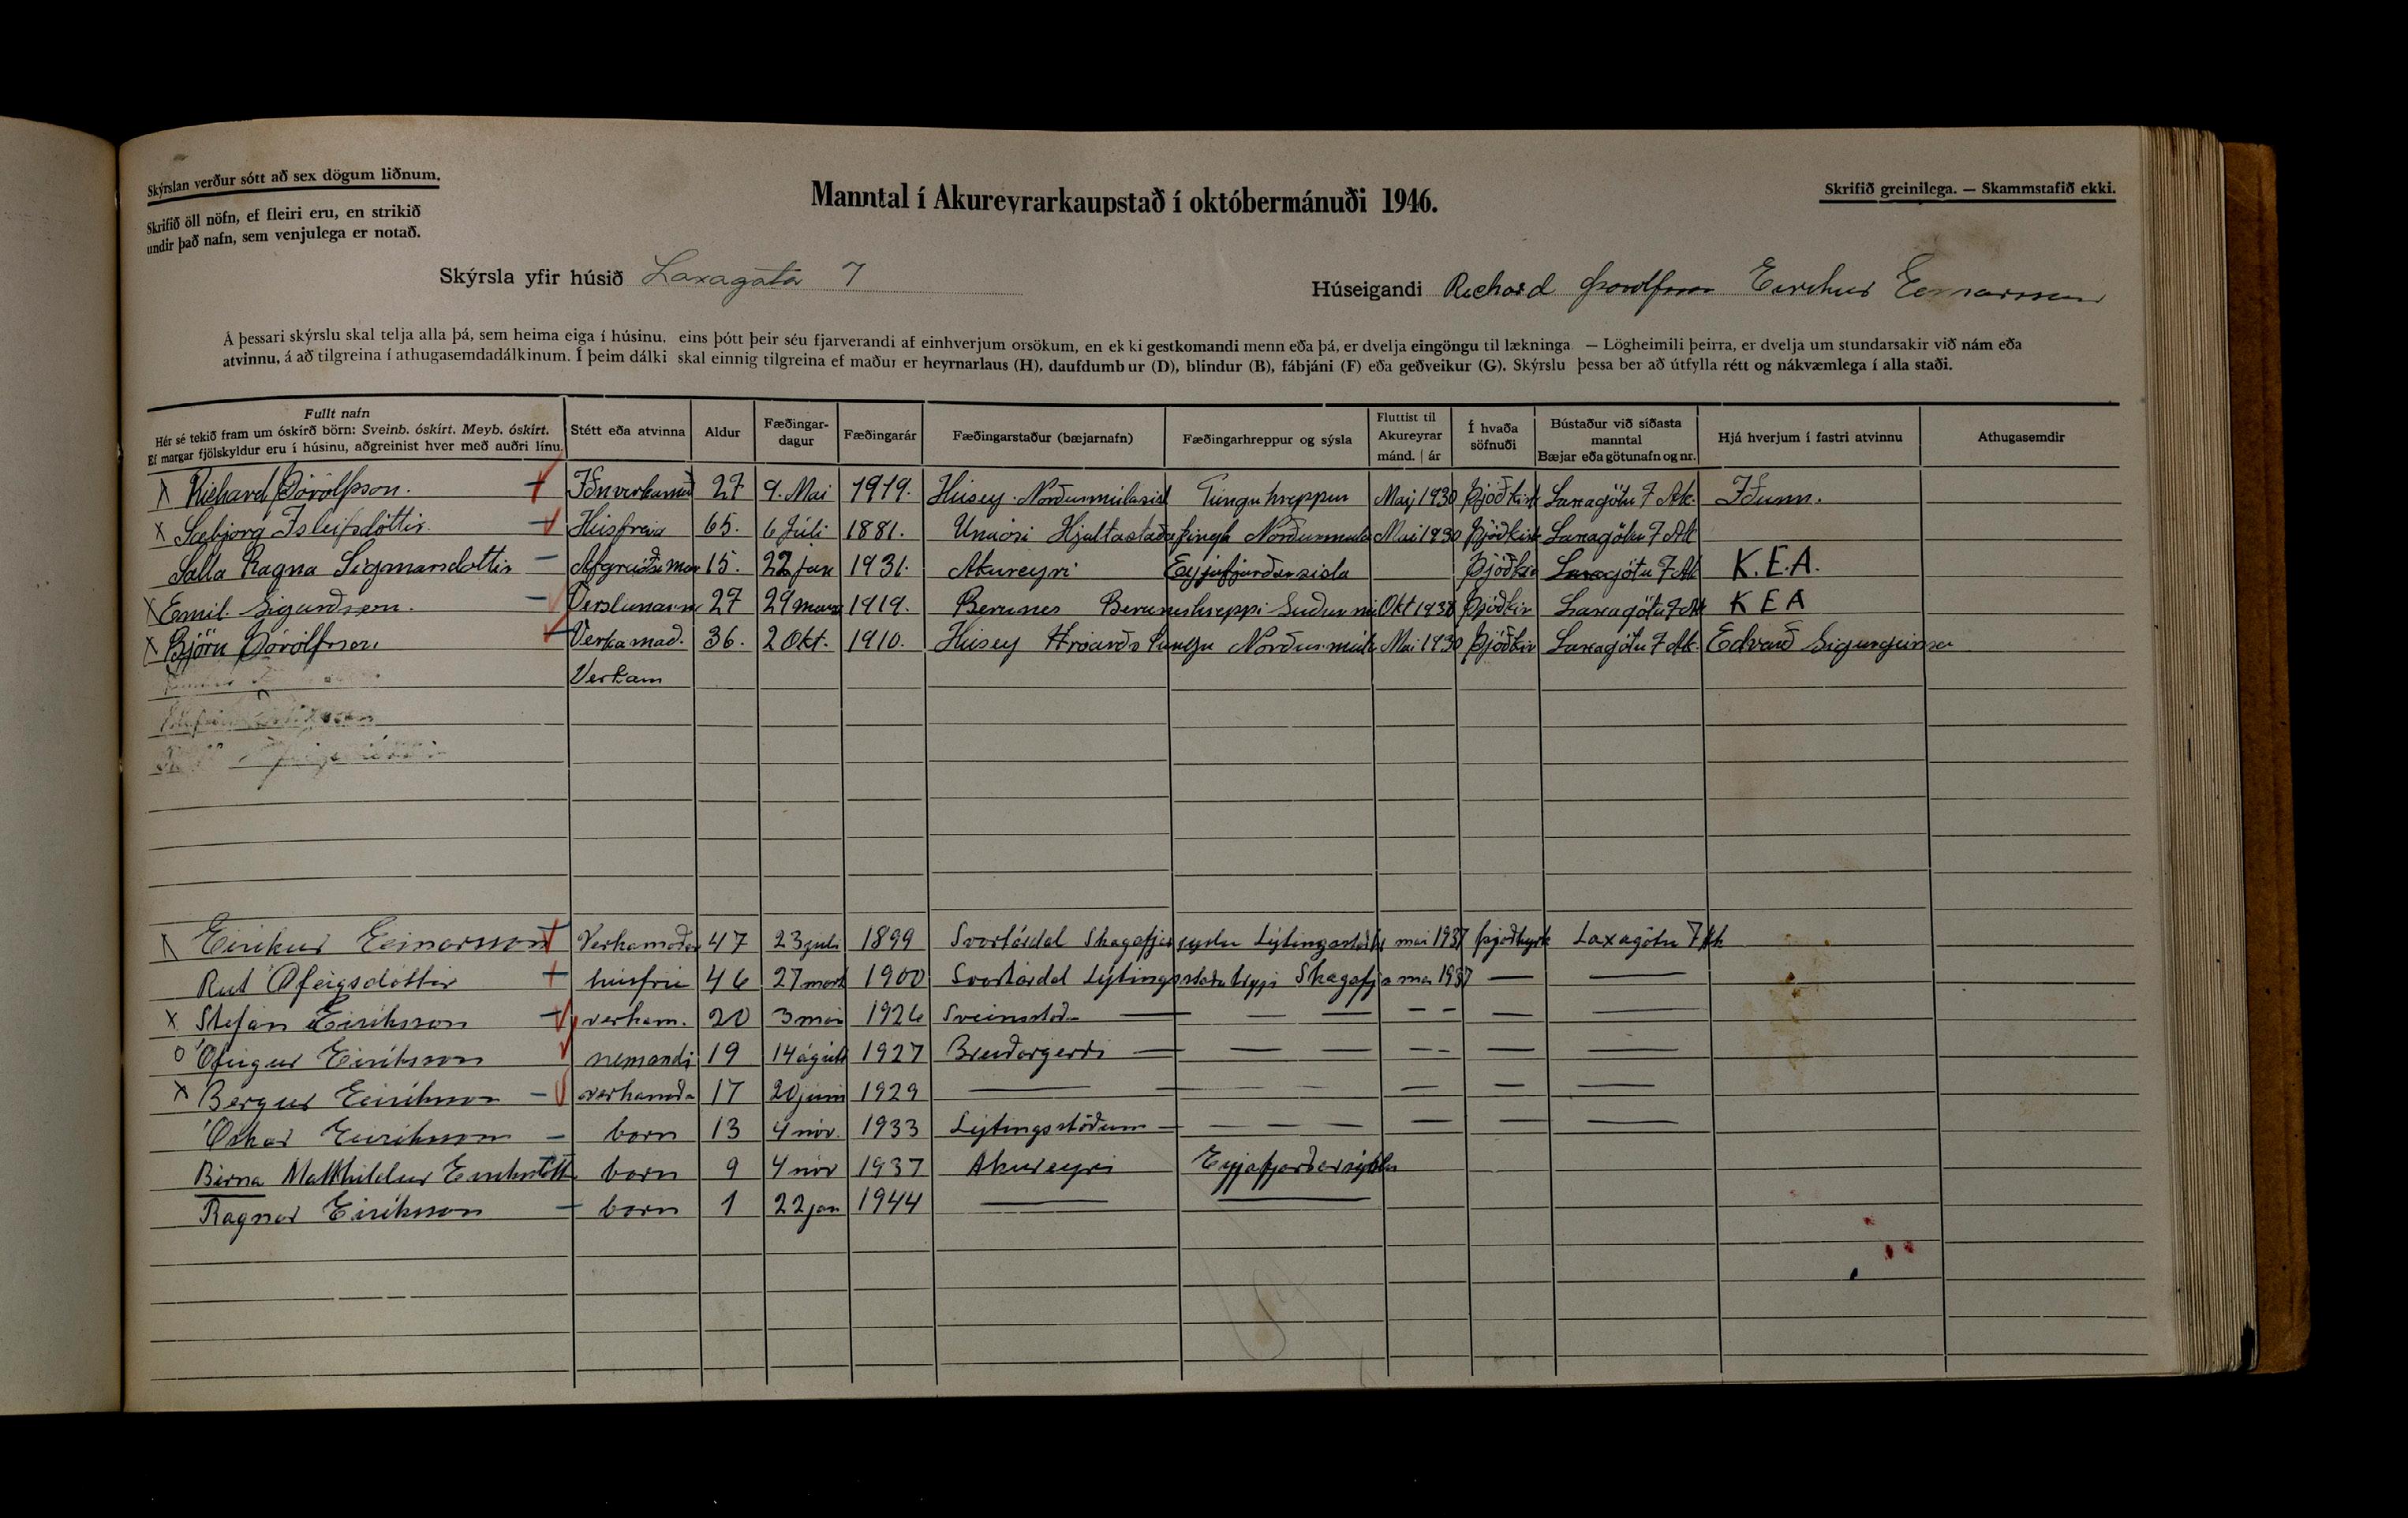 Skýrslan verður sótt að sex dögum liðnum.
Skrifið öll nöfn, ef fleiri eru, en strikið
undir það nafn, sem venjulega er notað.
Manntal í Akureyrarkaupstað í októbermánuði 1946.
Skrifið greinilega. — Skammstafið ekki.
Skýrsla yfir húsið Laxagata 7
Húseigandi Richard Þorolfsson Eirikur Einarsson
Á þessari skýrslu skal telja alla þá, sem heima eiga í húsinu, eins þótt þeir séu fjarverandi af einhverjum orsökum, en ekki gestkomandi menn eða þá, er dvelja eingöngu til lækninga — Lögheimili þeirra, er dvelja um stundarsakir við nám eða
atvinnu, á að tilgreina í athugasemdadálkinum. Í þeim dálki skal einnig tilgreina ef maður er heyrnarlaus (H), daufdumbur (D), blindur (B), fábjáni (F) eða geðveikur (G). Skýrslu þessa ber að útfylla rétt og nákvæmlega í alla staði.
Fullt nafn
Hér sé tekið fram um óskírð börn: Sveinb. óskírt. Meyb. óskírt.
Ef margar fjölskyldur eru í húsinu, aðgreinist hver með auðri línu.
Stétt eða atvinna
Aldur
Fæðingar-
dagur
Fæðingarár
Fæðingarstaður (bæjarnafn)
Fæðingarhreppur og sýsla
Fluttist til
Akureyrar
mánd. | ár
Í hvaða
söfnuði
Bústaður við síðasta
manntal
Bæjar eða götunafn og nr.
Hjá hverjum í fastri atvinnu
Athugasemdir
X Richard Þórólfsson. Iðnverkamað 27 9. Mai 1919. Húsey Norðurmúlasisl Tunguhreppur Maij 1930 Þjóðkirk Laxagötu 7 Ak. Iðunn.
X Sæbjorg Isleifsdóttir. Húsfreia 65. 6 Júli 1881. Unaósi Hjaltastaðaþingh Norðurmula Mai 1930 Þjóðkirk Laxagötu 7 Ak
Salla Ragna Sigmarsdottir Afgreiðsmær 15. 22 jan 1931. Akureyri Eyjafjarðarsisla Þjóðkir Laxagötu 7 Ak K.E.A.
X Emil Sigurðsson. Verslunarm 27 29 mars 1919. Berunes Beruneshreppi Suðurmú Okt 1938 Þjóðkir Laxagötu 7 Ak K E A
X Björn Þórólfsson. Verkamað. 36. 2 Okt. 1910. Húsey Hróarðstungu Norðurmúla Mai 1930 Þjóðkir Laxagötu 7 Ak. Edvarð Sigurgeirsson
Verkam
X Eirikur Einarsson Verkamaður 47 23 juli 1899 Svartárdal Skagafjarsyslu Lýtingsstöð mai 1937 Þjoðkyrk Laxagötu 7 Ak
Rut Ofeigsdóttir húsfrú 46 27 mars 1900 Svartárdal Lýtingsstaðahreppi Skagafj mai 1937 — —
X Stefán Eiríksson verkam. 20 3 mai 1926 Sveinsstoð — — — — — — —
O Ófeigur Eiríksson nemandi 19 14 ágúst 1927 Breiðargerði — — — — — — —
X Bergur Eiríksson verkamað 17 20 juni 1929 — — — — — — —
Óskar Eiríksson born 13 4 nóv. 1933 Lýtingsstöðum — — — — — — —
Birna Matthildur Eiriksdótt born 9 4 nóv 1937 Akureyri Eyjafjarðarsýslu
Ragnar Eiríksson born 1 22 jan 1944 — —